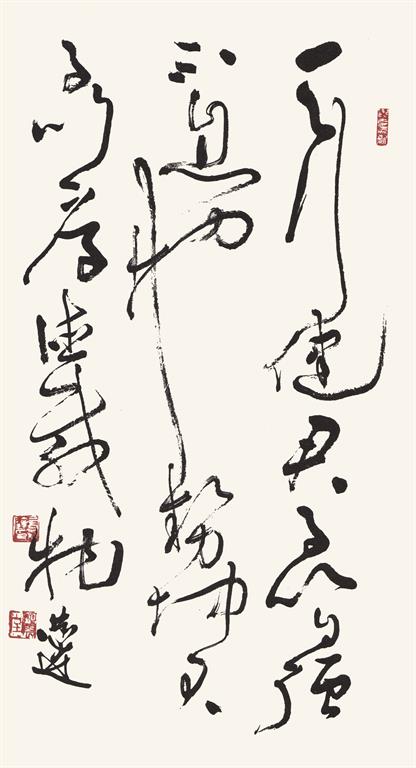 天行健君子以自強
不息地勢坤君
子以厚德載物